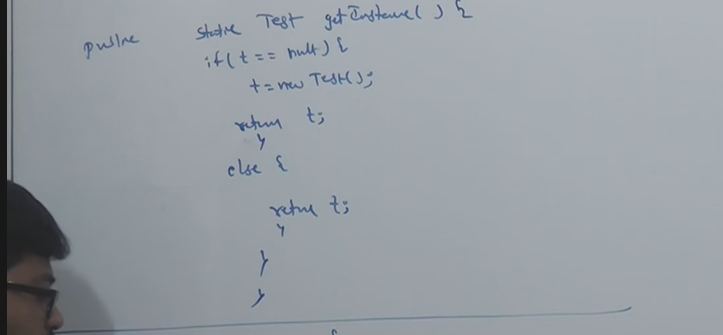 public static Test getInstance() {
if(t == null) {
t = new Test();
return t;
}
else {
return t;
}
}
}